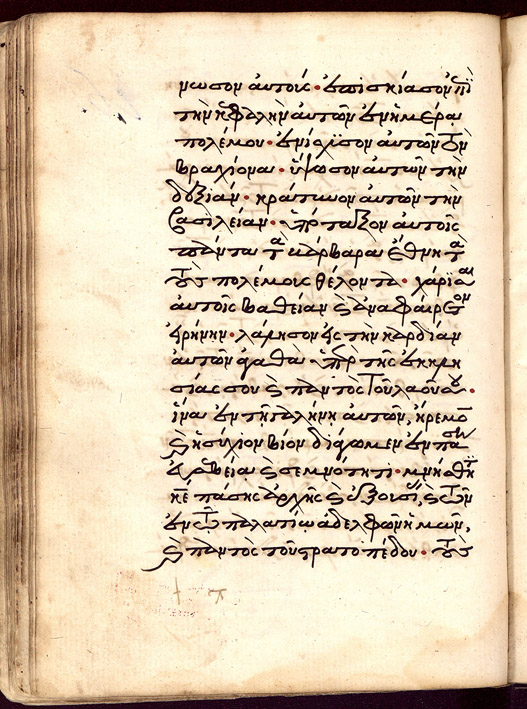 νωσον αὐτοὺς · ἐπισκίασον ἐπὶ
τὴν κεφαλὴν αὐτῶν ἐν ἡμέρᾳ
πολέμου · ἐνίσχυσον αὐτῶν τὸν
βραχίονα · ὕψωσον αὐτῶν τὴν
δεξιάν · κράτυνον αὐτῶν τὴν
βασιλείαν · ὑπόταξον αὐτοῖς
πάντα τὰ βάρβαρα ἔθνη τὰ
τοὺς πολέμους θέλοντα · χάρισαι
αὐτοῖς βαθεῖαν καὶ ἀναφαίρετον
εἰρήνην · λάλησον εἰς τὴν καρδίαν
αὐτῶν ἀγαθὰ ὑπὲρ τῆς ἐκκλη
σίας σου καὶ παντὸς τοῦ λαοῦ σου ·
ἵνα ἐν τῇ γαλήνῃ αὐτῶν, ἤρεμον
καὶ ἡσύχιον βίον διάγωμεν ἐν πάσῃ
εὐσεβείᾳ καὶ σεμνότητι · μνήσθητι
κε πάσης ἀρχῆς καὶ ἐξουσίας, καὶ τῶν
ἐν τῷ παλατίῳ ἀδελφῶν ἡμῶν,
καὶ παντὸς τοῦ στρατοπέδου · τοὺς